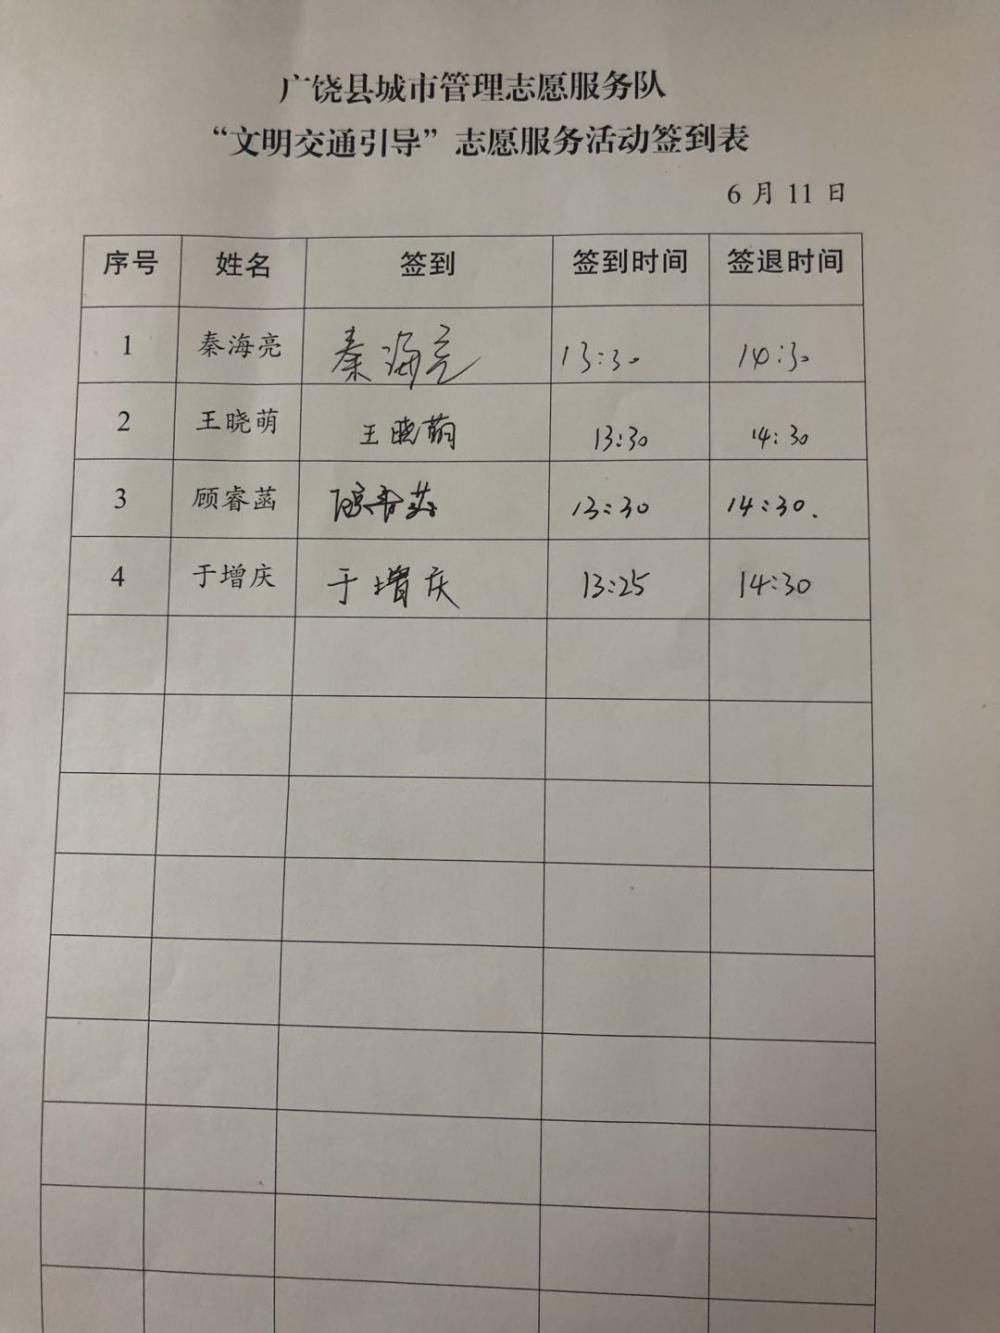 广饶县城市管理志愿服务队
“文明交通引导”志愿服务活动签到表
6 月 11 日
序号 姓名 签到 签到时间 签退时间
1 秦海亮 秦海亮 13:30 14:30
2 王晓萌 王晓萌 13:30 14:30
3 顾睿菡 顾睿菡 13:30 14:30.
4 于增庆 于增庆 13:25 14:30